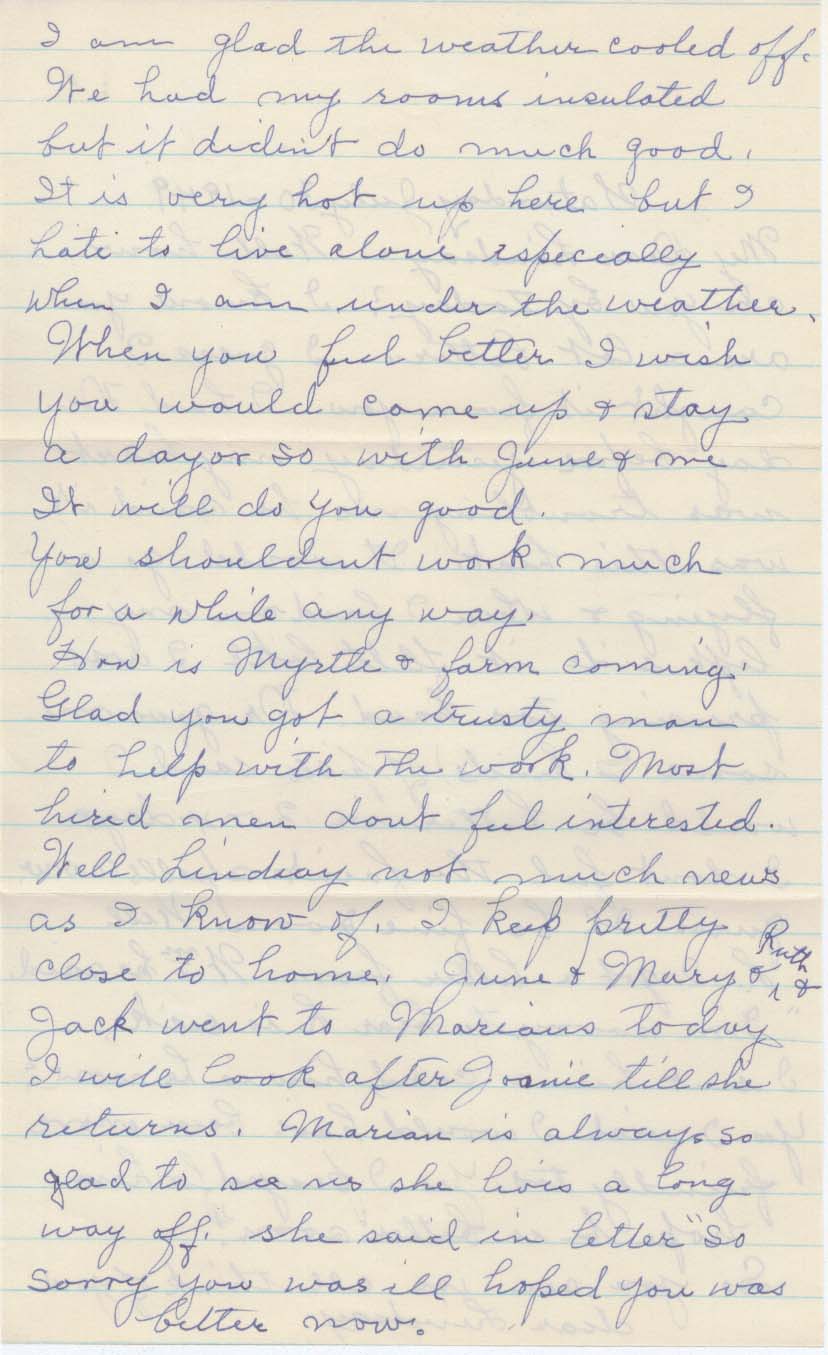 I am glad the weather cooled off.
We had my rooms insulated
but it diden't do much good.
It is very hot up here but I
hate to live alone especially
when I am under the weather.
When you feel better I wish
you would come up & stay
a day or so with June & me
It will do you good.
You shouldent work much
for a while any way.
How is Myrtle & farm coming.
Glad you got a trusty man
to help with the work. Most
hired men dont feel interested.
Well Lindsay not much news
as I know of. I keep pretty
close to home. June & Mary & Ruth &
Jack went to Marians today
I will look after Joanie till she
returns. Marian is always so
glad to see us she lives a long
way off. she said in letter "so
sorry you was ill hoped you was
better now.